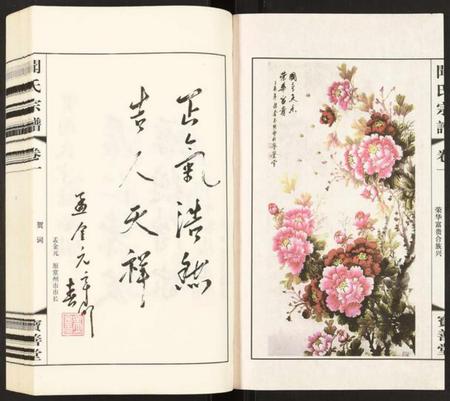 聞氏宗譜
卷一
荣华富贵合族兴
寶善堂
國色天香
榮華富貴
正氣浩然
吉人天祥
孟金元 辛卯
春
孟金元 原常州市市长
賀詞
聞氏宗譜
卷一
寶善堂